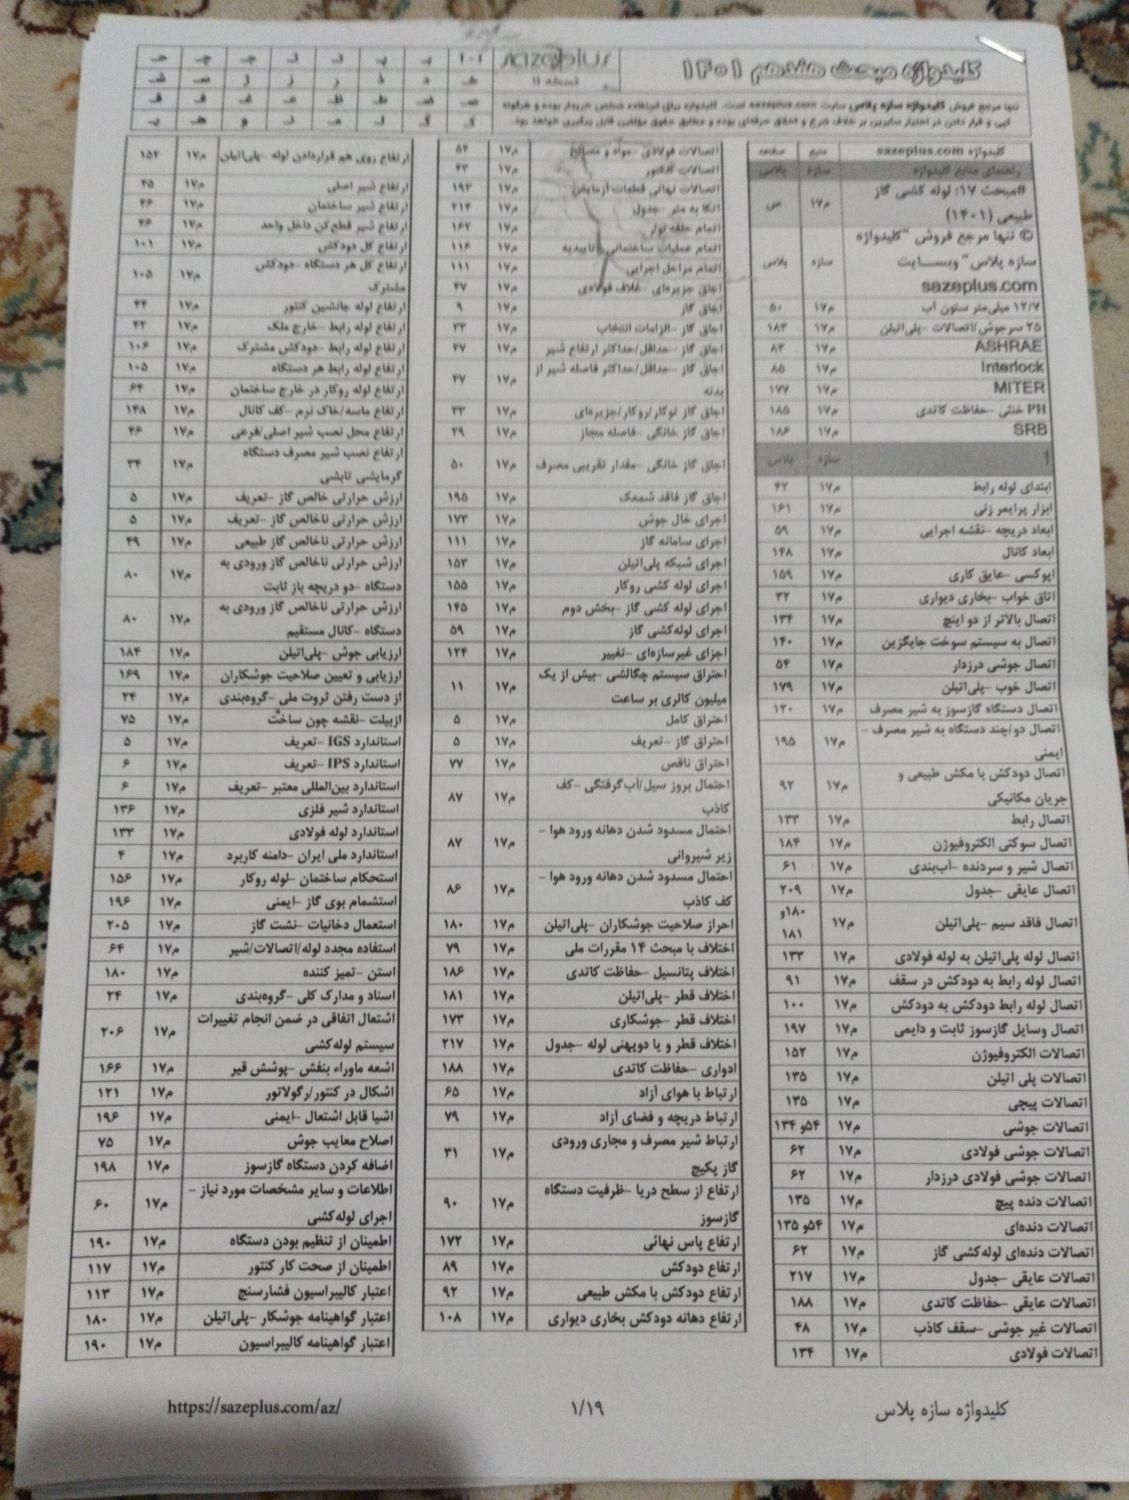 کلیدواژه مبحث هفدهم ۱۴۰۱
sazeplus
نسخه ۱۱
تنها مرجع فروش کلیدواژه سازه پلاس سایت sazeplus.com است. کلیدواژه برای استفاده شخص خریدار بوده و هرگونه
کپی و قرار دادن در اختیار سایرین بر خلاف شرع و اخلاق حرفه‌ای بوده و مطابق حقوق مؤلفین قابل پیگیری خواهد بود.
کلیدواژه sazeplus.com منبع صفحه
راهنمای منابع کلیدواژه سازه پلاس
#مبحث ۱۷: لوله کشی گاز
طبیعی (۱۴۰۱) م۱۷ ص
© تنها مرجع فروش "کلیدواژه
سازه پلاس" وبسایت سازه پلاس
sazeplus.com
۱۲/۷ میلی‌متر ستون آب م۱۷ ۵۰
۲۵ سرجوش/اتصالات -پلی‌اتیلن م۱۷ ۱۸۳
ASHRAE م۱۷ ۸۳
Interlock م۱۷ ۸۵
MITER م۱۷ ۱۷۷
PH خنثی -حفاظت کاتدی م۱۷ ۱۸۵
SRB م۱۷ ۱۸۶
ا سازه پلاس
ابتدای لوله رابط م۱۷ ۴۲
ابزار پرایمر زنی م۱۷ ۱۶۱
ابعاد دریچه -نقشه اجرایی م۱۷ ۵۹
ابعاد کانال م۱۷ ۱۴۸
اپوکسی -عایق کاری م۱۷ ۱۵۹
اتاق خواب -بخاری دیواری م۱۷ ۳۲
اتصال بالاتر از دو اینچ م۱۷ ۱۳۴
اتصال به سیستم سوخت جایگزین م۱۷ ۱۴۰
اتصال جوشی درزدار م۱۷ ۵۴
اتصال خوب -پلی‌اتیلن م۱۷ ۱۷۹
اتصال دستگاه گازسوز به شیر مصرف م۱۷ ۱۲۰
اتصال دو/چند دستگاه به شیر مصرف -
ایمنی م۱۷ ۱۹۵
اتصال دودکش با مکش طبیعی و
جریان مکانیکی م۱۷ ۹۲
اتصال رابط م۱۷ ۱۳۳
اتصال سوکتی الکتروفیوژن م۱۷ ۱۸۴
اتصال شیر و سردنده -آب‌بندی م۱۷ ۶۱
اتصال عایقی -جدول م۱۷ ۲۰۹
اتصال فاقد سیم -پلی‌اتیلن م۱۷ ۱۸۰و ۱۸۱
اتصال لوله پلی‌اتیلن به لوله فولادی م۱۷ ۱۳۳
اتصال لوله رابط به دودکش در سقف م۱۷ ۹۱
اتصال لوله رابط دودکش به دودکش م۱۷ ۱۰۰
اتصال وسایل گازسوز ثابت و دایمی م۱۷ ۱۹۷
اتصالات الکتروفیوژن م۱۷ ۱۵۲
اتصالات پلی اتیلن م۱۷ ۱۳۵
اتصالات پیچی م۱۷ ۱۳۵
اتصالات جوشی م۱۷ ۵۴و ۱۳۴
اتصالات جوشی فولادی م۱۷ ۶۲
اتصالات جوشی فولادی درزدار م۱۷ ۶۲
اتصالات دنده پیچ م۱۷ ۱۳۵
اتصالات دنده‌ای م۱۷ ۵۴و ۱۳۵
اتصالات دنده‌ای لوله‌کشی گاز م۱۷ ۶۲
اتصالات عایقی -جدول م۱۷ ۲۱۷
اتصالات عایقی -حفاظت کاتدی م۱۷ ۱۸۸
اتصالات غیر جوشی -سقف کاذب م۱۷ ۴۸
اتصالات فولادی م۱۷ ۱۳۴
اتصالات فولادی -مواد و مصالح م۱۷ ۵۴
اتصالات کنتور م۱۷ ۴۳
اتصالات نهائی قطعات آزمایش م۱۷ ۱۹۳
اتکا به متر -جدول م۱۷ ۲۱۴
اتمام حلقه نوار م۱۷ ۱۶۷
اتمام عملیات ساختمانی -تاییدیه م۱۷ ۱۱۶
اتمام مراحل اجرایی م۱۷ ۱۱۱
اجاق جزیره‌ای -غلاف فولادی م۱۷ ۴۷
اجاق گاز م۱۷ ۹
اجاق گاز -الزامات انتخاب م۱۷ ۳۳
اجاق گاز -حداقل/حداکثر ارتفاع شیر م۱۷ ۴۷
اجاق گاز -حداقل/حداکثر فاصله شیر از
بدنه م۱۷ ۴۷
اجاق گاز توکار/روکار/جزیره‌ای م۱۷ ۳۳
اجاق گاز خانگی -فاصله مجاز م۱۷ ۲۹
اجاق گاز خانگی -مقدار تقریبی مصرف م۱۷ ۵۰
اجاق گاز فاقد شمعک م۱۷ ۱۹۵
اجرای خال جوش م۱۷ ۱۷۳
اجرای سامانه گاز م۱۷ ۱۱۱
اجرای شبکه پلی‌اتیلن م۱۷ ۱۵۳
اجرای لوله کشی روکار م۱۷ ۱۵۵
اجرای لوله کشی گاز -بخش دوم م۱۷ ۱۴۵
اجرای لوله‌کشی گاز م۱۷ ۵۹
اجزای غیرسازه‌ای -تغییر م۱۷ ۱۲۴
احتراق سیستم چگالشی -بیش از یک
میلیون کالری بر ساعت م۱۷ ۱۱
احتراق کامل م۱۷ ۵
احتراق گاز -تعریف م۱۷ ۵
احتراق ناقص م۱۷ ۷۷
احتمال بروز سیل/آب‌گرفتگی -کف
کاذب م۱۷ ۸۷
احتمال مسدود شدن دهانه ورود هوا -
زیر شیروانی م۱۷ ۸۷
احتمال مسدود شدن دهانه ورود هوا -
کف کاذب م۱۷ ۸۶
احراز صلاحیت جوشکاران -پلی‌اتیلن م۱۷ ۱۸۰
اختلاف با مبحث ۱۴ مقررات ملی م۱۷ ۷۹
اختلاف پتانسیل -حفاظت کاتدی م۱۷ ۱۸۶
اختلاف قطر -پلی‌اتیلن م۱۷ ۱۸۱
اختلاف قطر -جوشکاری م۱۷ ۱۷۳
اختلاف قطر و یا دوپهنی لوله -جدول م۱۷ ۲۱۷
ادواری -حفاظت کاتدی م۱۷ ۱۸۸
ارتباط با هوای آزاد م۱۷ ۶۵
ارتباط دریچه و فضای آزاد م۱۷ ۷۹
ارتباط شیر مصرف و مجاری ورودی
گاز پکیج م۱۷ ۳۱
ارتفاع از سطح دریا -ظرفیت دستگاه
گازسوز م۱۷ ۹۰
ارتفاع پاس نهائی م۱۷ ۱۷۲
ارتفاع دودکش م۱۷ ۸۹
ارتفاع دودکش با مکش طبیعی م۱۷ ۹۲
ارتفاع دهانه دودکش بخاری دیواری م۱۷ ۱۰۸
ارتفاع روی هم قراردادن لوله -پلی‌اتیلن م۱۷ ۱۵۲
ارتفاع شیر اصلی م۱۷ ۴۵
ارتفاع شیر ساختمان م۱۷ ۴۶
ارتفاع شیر قطع‌کن داخل واحد م۱۷ ۴۶
ارتفاع کل دودکش م۱۷ ۱۰۱
ارتفاع کل هر دستگاه -دودکش
مشترک م۱۷ ۱۰۵
ارتفاع لوله جانشین کنتور م۱۷ ۴۴
ارتفاع لوله رابط -خارج ملک م۱۷ ۴۲
ارتفاع لوله رابط -دودکش مشترک م۱۷ ۱۰۶
ارتفاع لوله رابط هر دستگاه م۱۷ ۱۰۵
ارتفاع لوله روکار در خارج ساختمان م۱۷ ۶۴
ارتفاع ماسه/خاک نرم -کف کانال م۱۷ ۱۴۸
ارتفاع محل نصب شیر اصلی/فرعی م۱۷ ۴۶
ارتفاع نصب شیر مصرف دستگاه
گرمایشی تابشی م۱۷ ۳۴
ارزش حرارتی خالص گاز -تعریف م۱۷ ۵
ارزش حرارتی ناخالص گاز -تعریف م۱۷ ۵
ارزش حرارتی ناخالص گاز طبیعی م۱۷ ۴۹
ارزش حرارتی ناخالص گاز ورودی به
دستگاه -دو دریچه باز ثابت م۱۷ ۸۰
ارزش حرارتی ناخالص گاز ورودی به
دستگاه -کانال مستقیم م۱۷ ۸۰
ارزیابی جوش -پلی‌اتیلن م۱۷ ۱۸۴
ارزیابی و تعیین صلاحیت جوشکاران م۱۷ ۱۶۹
از دست رفتن ثروت ملی -گروه‌بندی م۱۷ ۲۴
ازبیلت -نقشه چون ساخت م۱۷ ۷۵
استاندارد IGS -تعریف م۱۷ ۵
استاندارد IPS -تعریف م۱۷ ۶
استاندارد بین‌المللی معتبر -تعریف م۱۷ ۶
استاندارد شیر فلزی م۱۷ ۱۳۶
استاندارد لوله فولادی م۱۷ ۱۳۳
استاندارد ملی ایران -دامنه کاربرد م۱۷ ۴
استحکام ساختمان -لوله روکار م۱۷ ۱۵۶
استشمام بوی گاز -ایمنی م۱۷ ۱۹۶
استعمال دخانیات -نشت گاز م۱۷ ۲۰۵
استفاده مجدد لوله/اتصالات/شیر م۱۷ ۶۴
استن -تمیز کننده م۱۷ ۱۸۰
اسناد و مدارک کلی -گروه‌بندی م۱۷ ۲۴
اشتعال اتفاقی در ضمن انجام تغییرات
سیستم لوله‌کشی م۱۷ ۲۰۶
اشعه ماوراء بنفش -پوشش قیر م۱۷ ۱۶۶
اشکال در کنتور/رگولاتور م۱۷ ۱۲۱
اشیا قابل اشتعال -ایمنی م۱۷ ۱۹۶
اصلاح معایب جوش م۱۷ ۷۵
اضافه کردن دستگاه گازسوز م۱۷ ۱۹۸
اطلاعات و سایر مشخصات مورد نیاز -
اجرای لوله‌کشی م۱۷ ۶۰
اطمینان از تنظیم بودن دستگاه م۱۷ ۱۹۰
اطمینان از صحت کار کنتور م۱۷ ۱۱۷
اعتبار کالیبراسیون فشارسنج م۱۷ ۱۱۳
اعتبار گواهینامه جوشکار -پلی‌اتیلن م۱۷ ۱۸۰
اعتبار گواهینامه کالیبراسیون م۱۷ ۱۹۰
کلیدواژه سازه پلاس
۱/۱۹
https://sazeplus.com/az/